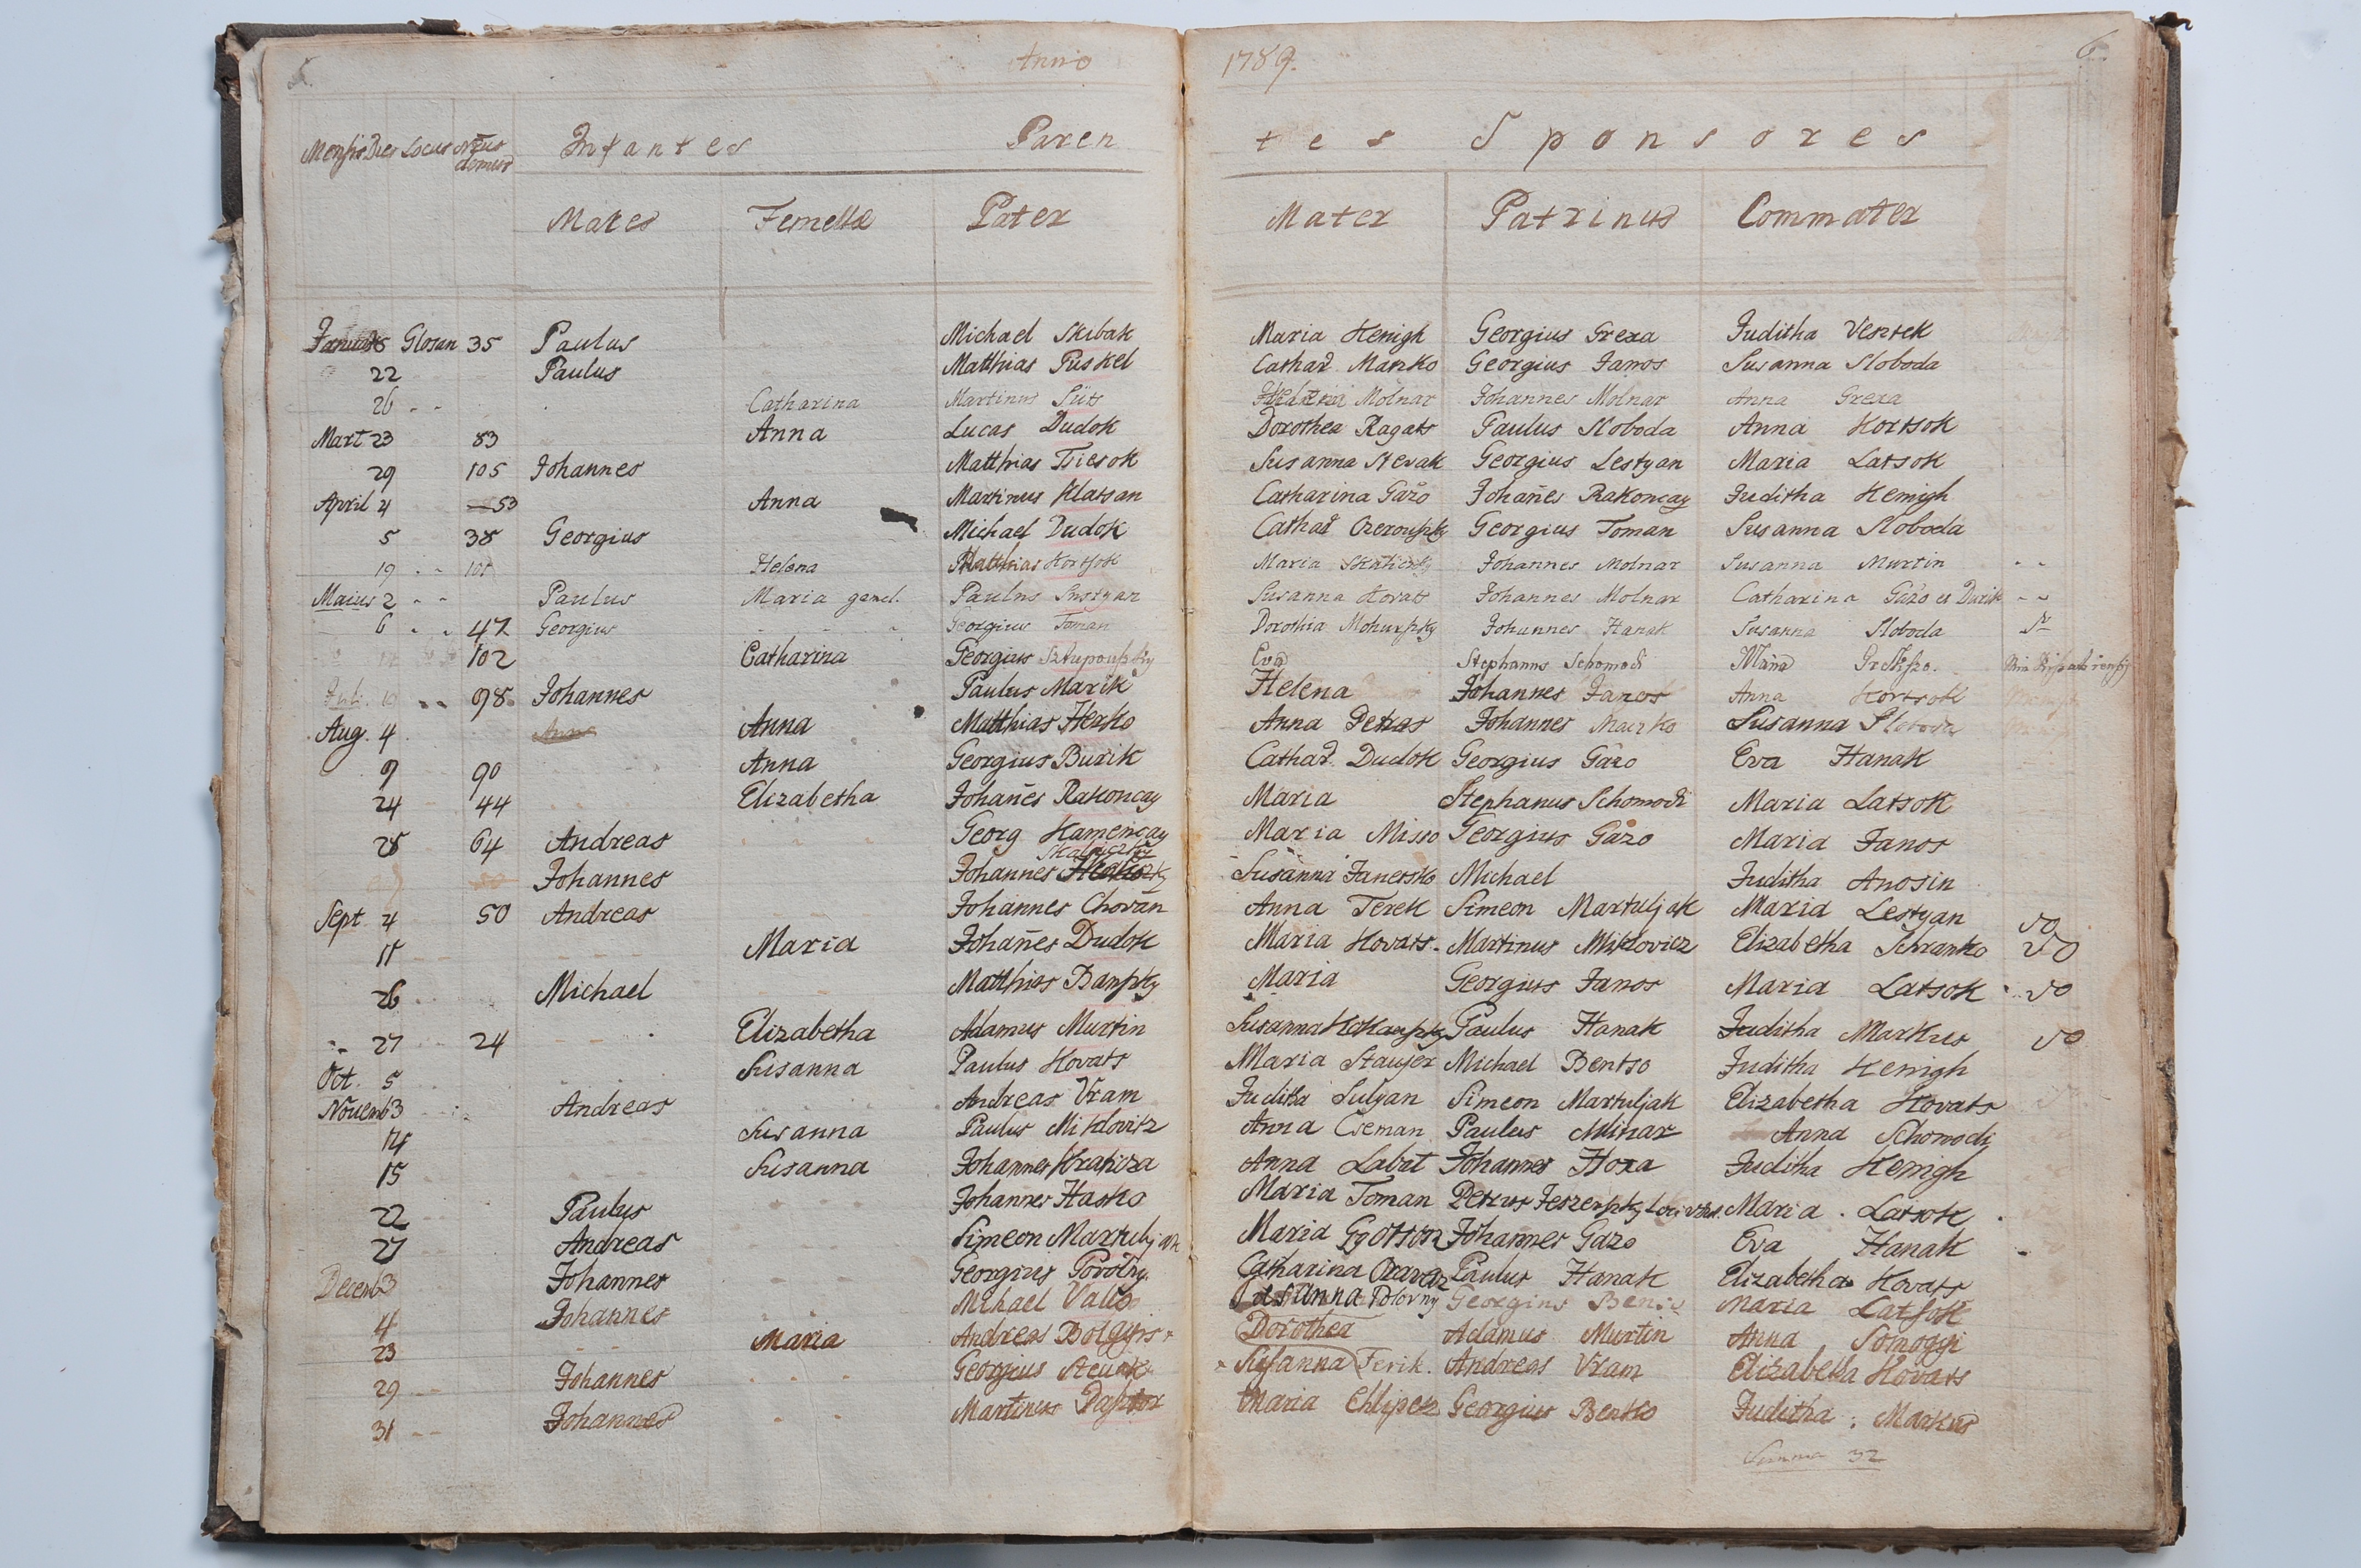 5. Anno 1789. 6
Mensis Dies Locus Nrus domus Infantes Paren tes Sponsores
Mares Femellæ Pater Mater Patrinus Commater
Januar 5 Glosan 35 Paulus Michael Skibak Maria Henigh Georgius Grexa Juditha Vesztek
22 Paulus Matthias Puskel Cathar Marzko Georgius Janos Susanna Sloboda
26 Catharina Martinus Süts Molnar Johannes Molnar Anna Grexa
Mart 23 83 Anna Lucas Dudok Dorothea Ragats Paulus Sloboda Anna Kortsok
29 105 Johannes Matthias Tsiesok Susanna Stevak Georgius Lestyan Maria Latsok
April 4 53 Anna Martinus Klatsan Catharina Gažo Johañes Rakoncay Juditha Henigh
5 38 Georgius Michael Dudok Cathar Georgius Toman Susanna Sloboda
19 101 Helena Matthias Kortsok Maria Skaliczky Johannes Molnar Susanna Murtin
Maius 2 Paulus Maria gemel. Paulus Susanna Kovats Johannes Molnar Catharina Gažo et Durik
6 47 Georgius Georgius Toman Dorothia Johannes Hanak Susanna Sloboda
102 Catharina Georgius Eva Stephanus Schomodi Maria
Juli 98 Johannes Paulus Marik Helena Johannes Janos Anna Kortsok
Aug. 4 Anna Matthias Herko Anna Petras Johannes Marzko Susanna Sloboda
9 90 Anna Georgius Burik Cathar. Dudok Georgius Gažo Eva Hanak
24 44 Elizabetha Johañes Rakoncay Maria Stephanus Schomodi Maria Latsok
28 64 Andreas Georg Kamencay Maria Misso Georgius Gažo Maria Janos
Skaliczky
Johannes Johannes Susanna Janetsko Michael Juditha Anosin
Sept. 4 50 Andreas Johannes Chovan Anna Terek Simeon Martuljak Maria Lestyan
11 Maria Johañes Dudok Maria Kovats Martinus Miklovicz Elizabetha Schranko
26 Michael Matthias Banszky Maria Georgius Janos Maria Latsok
27 24 Elizabetha Adamus Murtin Susanna Paulus Hanak Juditha Markus
Oct. 5 Susanna Paulus Kovats Maria Staujer Michael Bentso Juditha Henigh
Novemb 3 Andreas Andreas Vram Juditha Sulyan Simeon Martuljak Elizabetha Kovats
14 Susanna Paulus Miklovitz Anna Cseman Paulus Mlinar Anna Schomodi
15 Susanna Johannes Kraticza Anna Labat Johannes Hora Juditha Henigh
22 Paulus Johannes Hasko Maria Toman Petrus Jeszenszky Maria Latsok
27 Andreas Simeon Martuljak Maria Johannes Gažo Eva Hanak
Decemb 3 Johannes Georgius Povolny Catharina Oravecz Paulus Hanak Elizabetha Kovats
4 Johannes Mihael Valiso Susanna Polovny Georgius Maria Latsok
23 Maria Andreas Dorothea Adamus Murtin Anna Somogyi
29 Johannes Georgius Stevak Susanna Ferik. Andreas Vram Elizabetha Kovats
31 Johannes Martinus Maria Chlipek Georgius Benko Juditha Markus
Summa 32